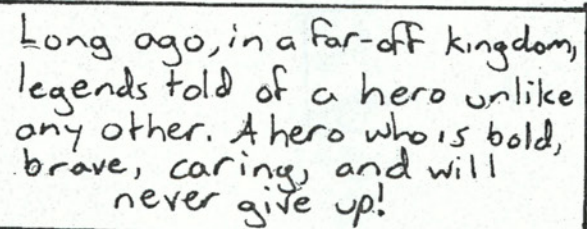 Long ago, in a far-off kingdom,
legends told of a hero unlike
any other. A hero who is bold,
brave, caring, and will
never give up!